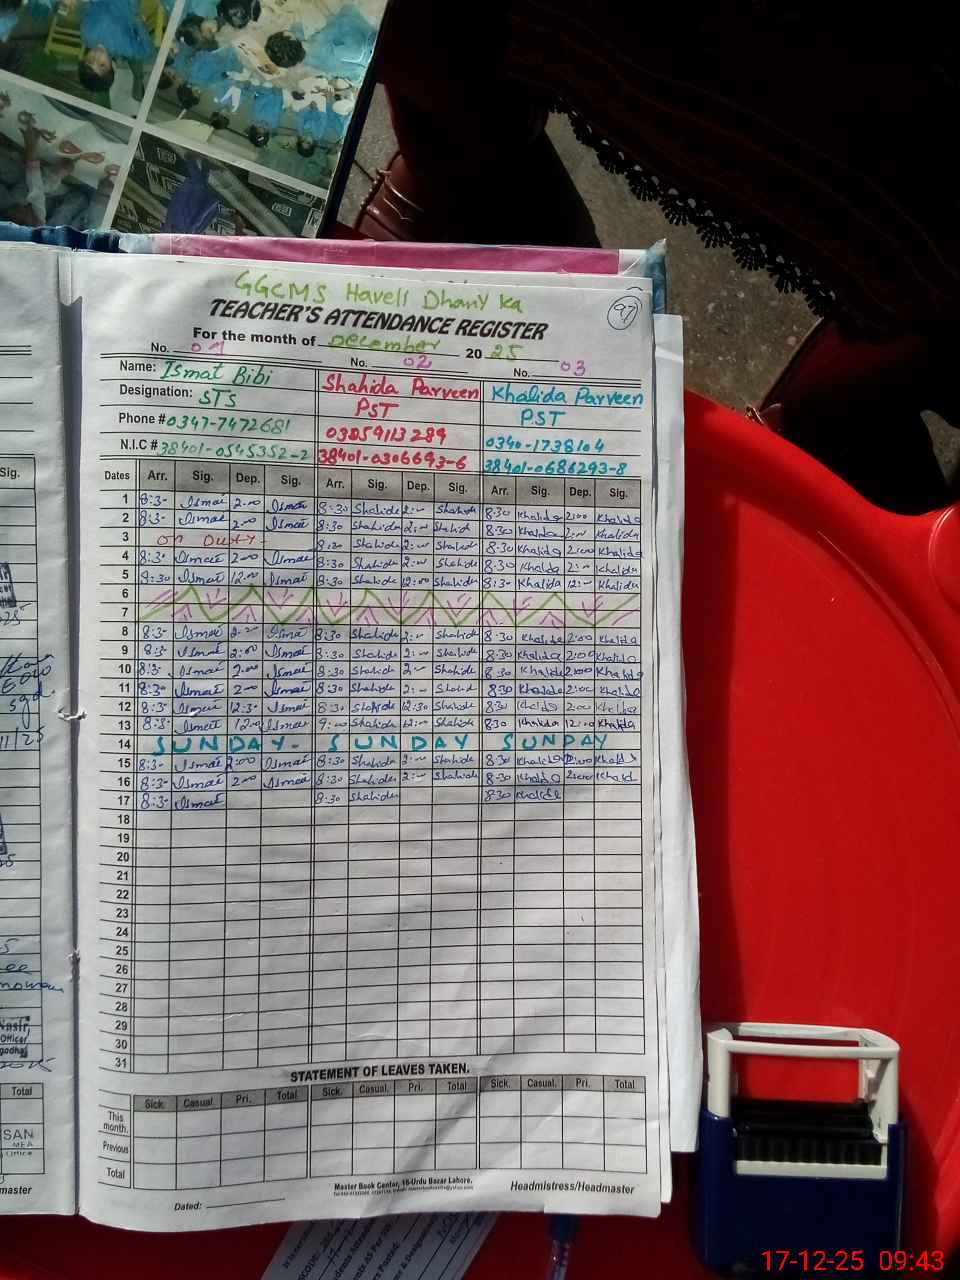 GGCMS Haveli Dhany ka
97
TEACHER'S ATTENDANCE REGISTER
For the month of December 2025
No. 01 No. 02 No. 03
Name: Ismat Bibi Shahida Parveen Khalida Parveen
Designation: STS PST PST
Phone # 0347-7472681 03059113289 0340-1738104
N.I.C # 38401-0545352-2 38401-0306693-6 38401-0686293-8
Dates Arr. Sig. Dep. Sig. Arr. Sig. Dep. Sig. Arr. Sig. Dep. Sig.
1 8:3- Ismat 2:00 Ismat 8:30 Shahida 2:- Shahida 8:30 Khalida 2:00 Khalida
2 8:3- Ismat 2:00 Ismat 8:30 Shahida 2:- Shahid 8:30 Khalida 2:- Khalida
3 on Duty 8:30 Shahida 2:00 Shahid 8:30 Khalida 2:00 Khalida
4 8:3- Ismat 2:00 Ismat 8:30 Shahida 2:- Shahida 8:30 Khalida 2:- Khalida
5 8:30 Ismat 12:00 Ismat 8:30 Shahida 12:00 Shahida 8:3- Khalida 12:- Khalida
6
7
8 8:3- Ismat 2:- Ismat 8:30 Shahida 2:- Shahida 8:30 Khalida 2:00 Khalida
9 8:3- Ismat 2:00 Ismat 8:30 Shahida 2:- Shahida 8:30 Khalida 2:00 Khalida
10 8:3- Ismat 2:00 Ismat 8:30 Shahida 2:- Shahida 8:30 Khalida 2:00 Khalida
11 8:3- Ismat 2:00 Ismat 8:30 Shahida 2:- Shahid 8:30 Khalida 2:00 Khalida
12 8:3- Ismat 12:3- Ismat 8:30 Shahida 12:30 Shahida 8:30 Khalida 2:00 Khalida
13 8:3- Ismat 12:00 Ismat 9:00 Shahida 12:- Shahida 8:30 Khalida 12:00 Khalida
14 SUNDAY- SUNDAY SUNDAY
15 8:3- Ismat 2:00 Ismat 8:30 Shahida 2:- Shahida 8:30 Khalida 2:00 Khalid
16 8:3- Ismat 2:00 Ismat 8:30 Shahida 2:- Shahida 8:30 Khalida 2:00 Khalid
17 8:3- Ismat 8:30 Shahida 8:30 Khalida
18
19
20
21
22
23
24
25
26
27
28
29
30
31
STATEMENT OF LEAVES TAKEN.
Sick. Casual. Pri. Total Sick. Casual. Pri. Total Sick. Casual. Pri. Total
This month.
Previous
Total
Master Book Center, 16-Urdu Bazar Lahore.
Dated: Headmistress/Headmaster
Sig.
11/25
Nasir
Officer
Total
SAN
master
17-12-25 09:43